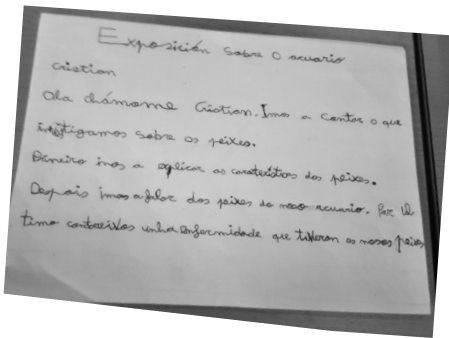 Exposición sobre o acuario
cristian
Ola chámome Cristian. Imos a contar o que
investigamos sobre os peixes.
Primeiro imos a explicar as carateristicas dos peixes.
Despois imos a falar dos peixes do noso acuario. Por ul
timo contareivos unha enfermidade que tiveron os nosos peixes